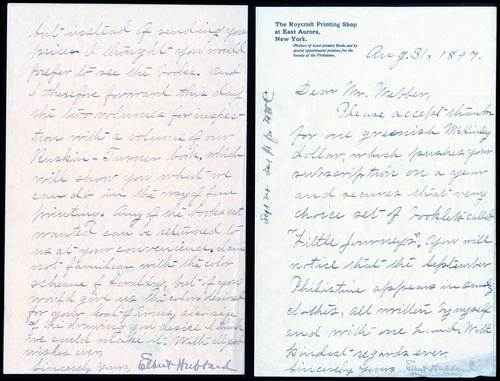 but instead of sending you
prices I thought you would
prefer to see the books. And
I therefore forward this day
the two volumes for inspec-
tion with a volume of our
Ruskin-Turner book, which
will show you what we
can do in the way of fine
printing. Any of the books not
wanted can be returned to
us at your convenience. I am
not familiar with the color
scheme of Heraldry, but if you
would give us the colors desired
for your coat of arms, also size
of the drawing you desire I think
we could make it. With all good
wishes ever,
Sincerely yours, Elbert Hubbard
The Roycroft Printing Shop
at East Aurora,
New York.
(Makers of hand-printed Books and by
special appointment printers for the
Society of the Philistines.
Aug. 31, 1897.
Dear Mr. Webber,
Please accept thanks
for one greenish McKinley
dollar, which pushes your
subscription on a year
and secures that very
choice set of booklets called
"Little Journeys". You will
notice that the September
Philistine appears in
clothes, all written by myself
and with one hand. With
kindest regards ever,
Sincerely Yours Elbert Hubbard